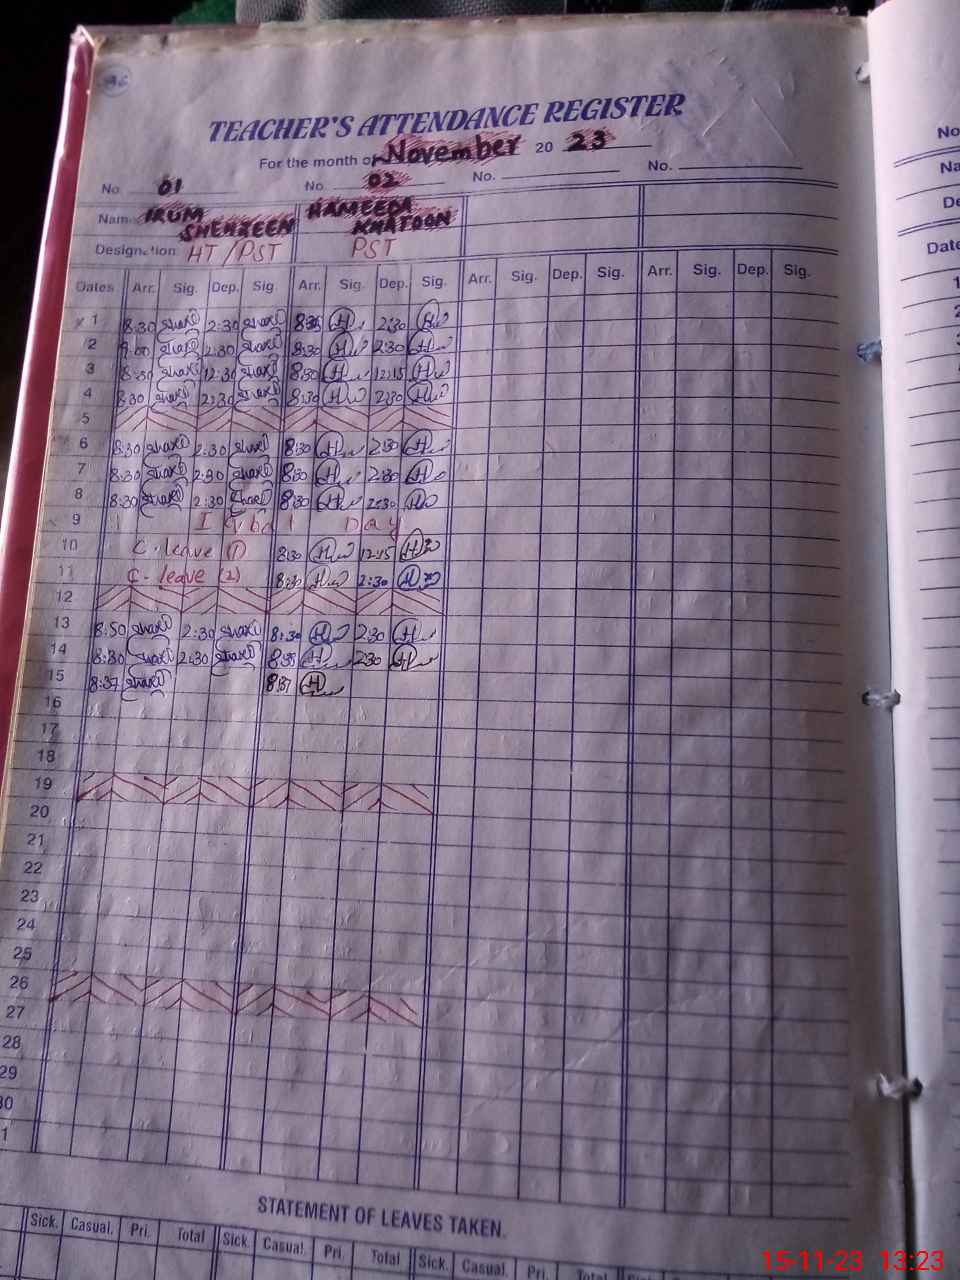 TEACHER'S ATTENDANCE REGISTER
For the month of November 20 23
No. 01 No. 02 No. No.
Name IRUM SHEHZEEN HAMEEDA KHATOON
Designation HT / PST PST
Dates Arr. Sig. Dep. Sig. Arr. Sig. Dep. Sig. Arr. Sig. Dep. Sig. Arr. Sig. Dep. Sig.
1 8:30 2:30 8:35 2:30
2 9:00 2:30 8:30 2:30
3 8:30 12:30 8:30 12:15
4 8:30 2:30 8:30 2:30
5
6 8:30 2:30 8:30 2:30
7 8:30 2:30 8:30 2:30
8 8:30 2:30 8:30 2:30
9 Iqbal Day
10 C. leave (1) 8:30 12:15
11 C- leave (2) 8:30 2:30
12
13 8:50 2:30 8:30 2:30
14 8:30 2:30 8:35 2:30
15 8:37 8:37
16
17
18
19
20
21
22
23
24
25
26
27
28
29
30
1
STATEMENT OF LEAVES TAKEN.
Sick. Casual. Pri. Total Sick. Casual. Pri. Total Sick. Casual. Pri. Total
No
Na
De
Date
15-11-23 13:23